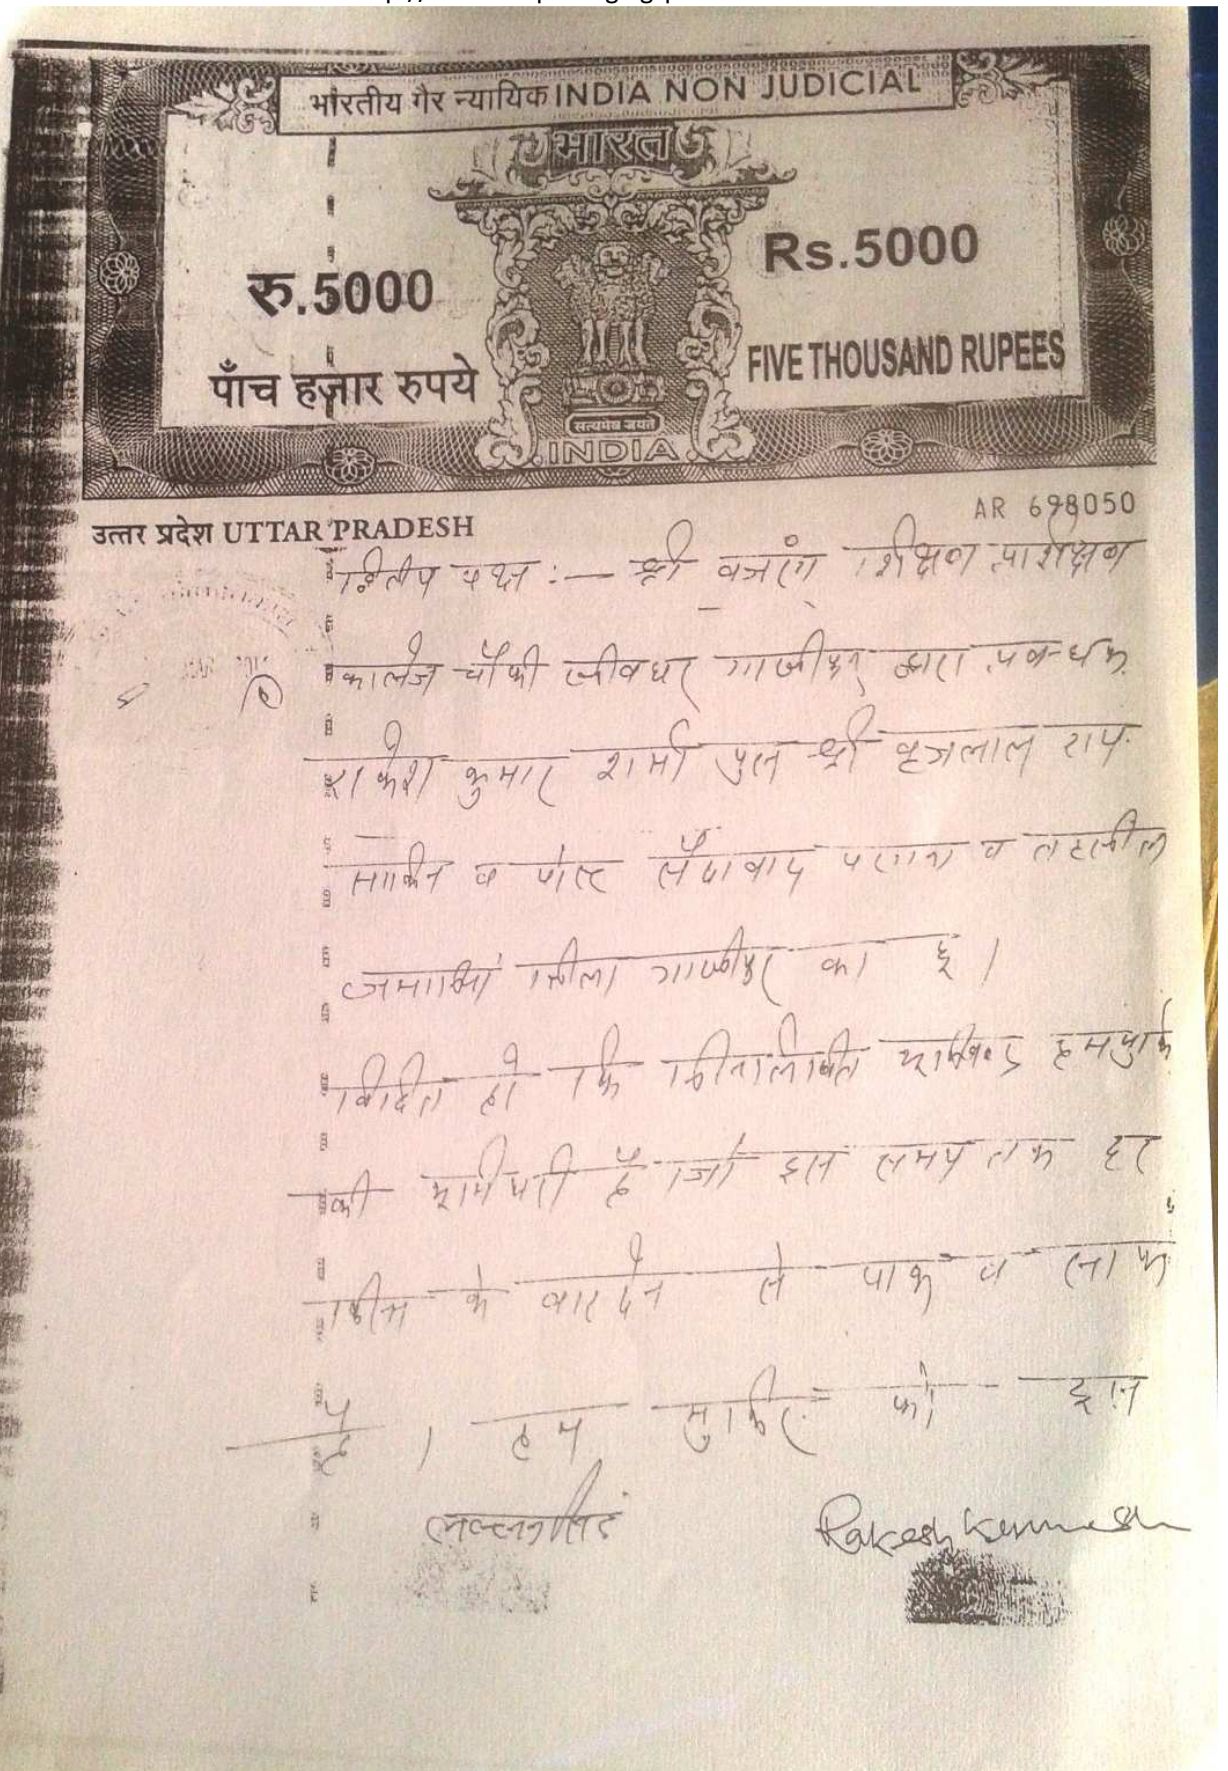 भारतीय गैर न्यायिक INDIA NON JUDICIAL
भारत
रु.5000
Rs.5000
पाँच हज़ार रुपये
FIVE THOUSAND RUPEES
सत्यमेव जयते
INDIA
AR 698050
उत्तर प्रदेश UTTAR PRADESH
द्वितीय पक्ष :— श्री बजरंग शिक्षण प्रशिक्षण
कालेज चौकी जीवधर गाजीपुर द्वारा प्रबन्धक
राकेश कुमार शर्मा पुत्र श्री वृजलाल राय
साकिन व पोस्ट सैदाबाद परगना व तहसील
जमानियां जिला गाजीपुर का हूं ।
विदित हो कि हम मुकिर
की भूमिधरी है जो इस समय तक हर
किस्म के बारदेन से पाक व साफ
है । हम मुकिर को इस
लल्लन सिंह
Rakesh Kumar Sh